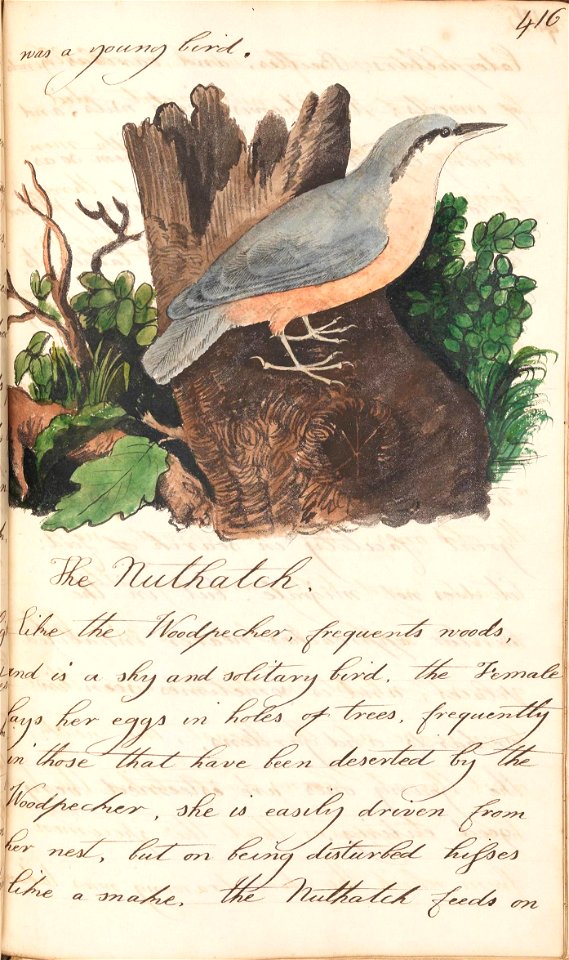 416
was a young bird.
The Nuthatch.
like the Woodpecker, frequents woods,
and is a shy and solitary bird. the Female
lays her eggs in holes of trees, frequently
in those that have been deserted by the
Woodpecker, she is easily driven from
her nest, but on being disturbed hiſses
like a snake. the Nuthatch feeds on